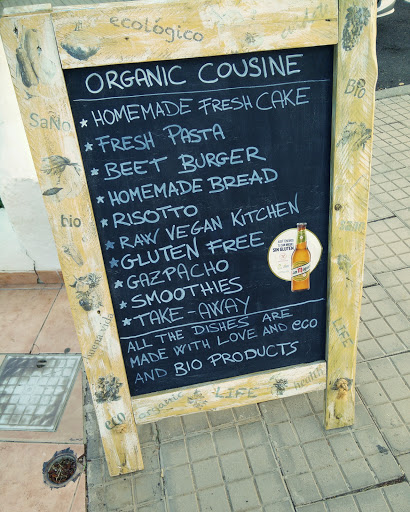 ecológico
ORGANIC COUSINE
* HOMEMADE FRESH CAKE
* FRESH PASTA
* BEET BURGER
* HOMEMADE BREAD
* RISOTTO
* RAW VEGAN KITCHEN
* GLUTEN FREE
* GAZPACHO
* SMOOTHIES
* TAKE-AWAY
ALL THE DISHES ARE
MADE WITH LOVE AND ECO
AND BIO PRODUCTS
SIN GLUTEN
Saño
bio
Bio
LIFE
eco
organic
LIFE
health